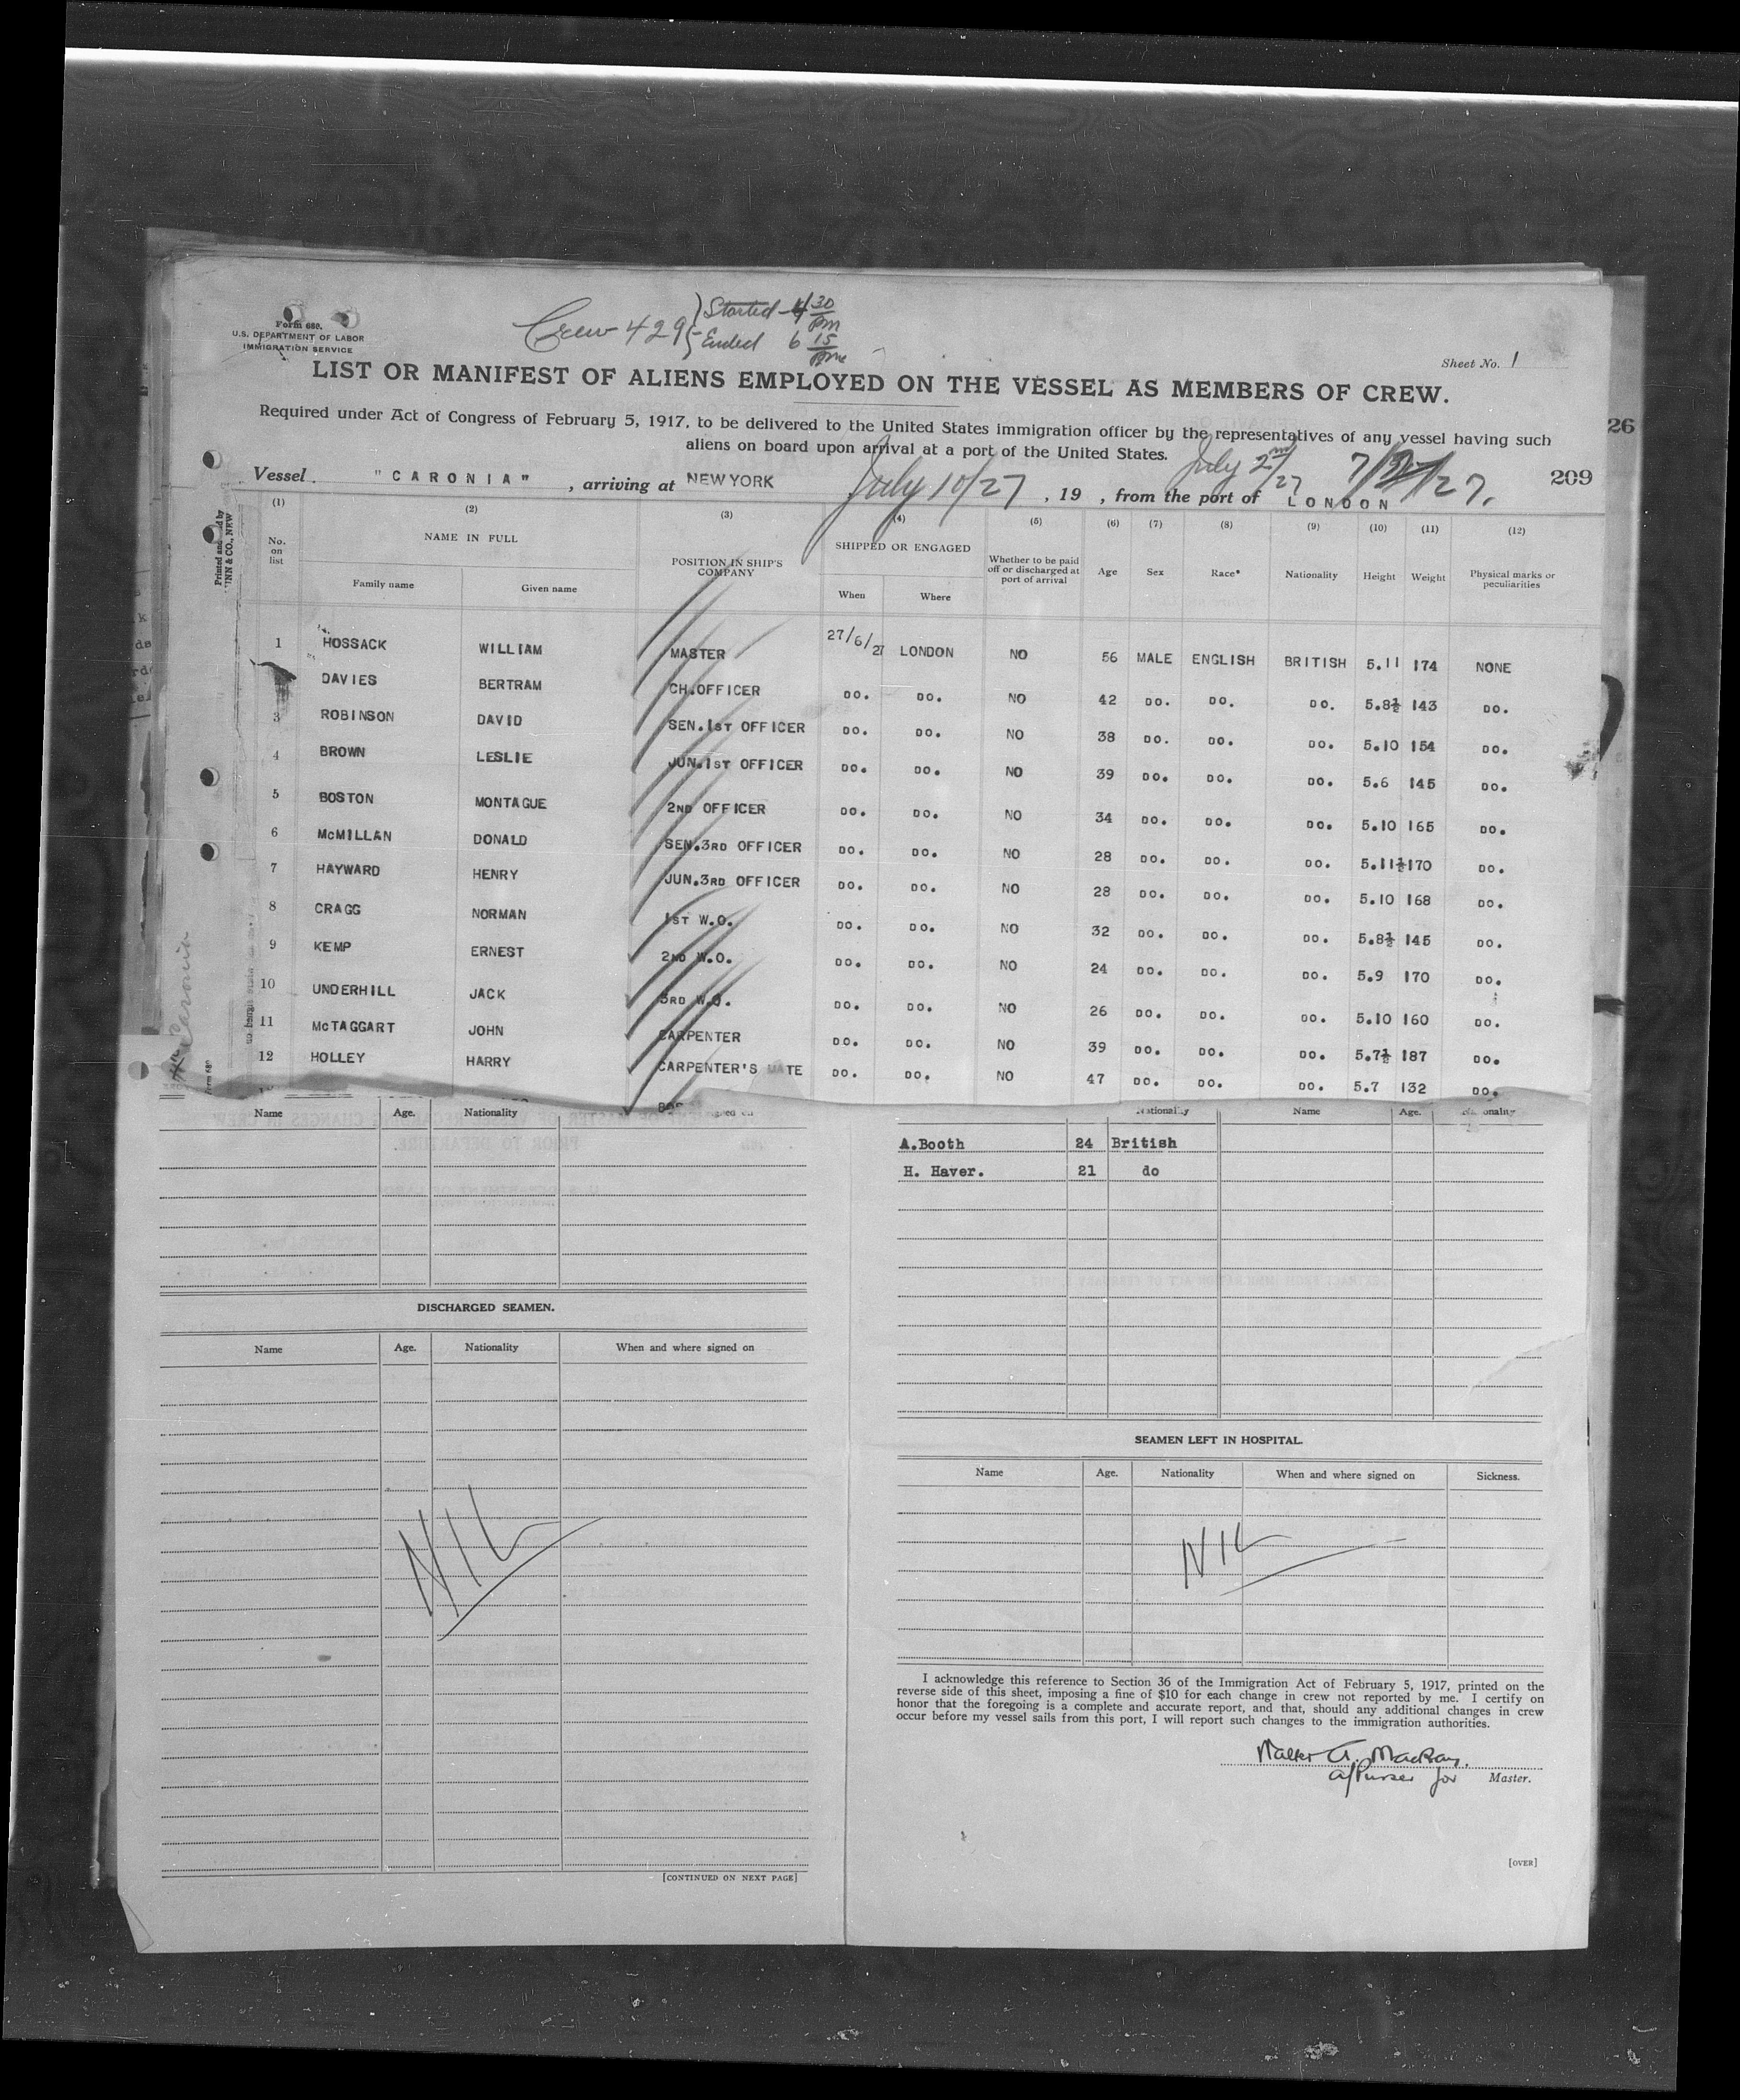 Form 680.
U.S. DEPARTMENT OF LABOR
IMMIGRATION SERVICE
Crew 429 } Started 4 30 pm
Ended 6 15 pm
Sheet No. 1
LIST OR MANIFEST OF ALIENS EMPLOYED ON THE VESSEL AS MEMBERS OF CREW.
Required under Act of Congress of February 5, 1917, to be delivered to the United States immigration officer by the representatives of any vessel having such
aliens on board upon arrival at a port of the United States.
26
209
Vessel "CARONIA", arriving at NEW YORK July 10/27, 19 , from the port of LONDON July 2nd/27
(1) (2) (3) (4) (5) (6) (7) (8) (9) (10) (11) (12)
No. on list NAME IN FULL Family name Given name POSITION IN SHIP'S COMPANY SHIPPED OR ENGAGED When Where Whether to be paid off or discharged at port of arrival Age Sex Race* Nationality Height Weight Physical marks or peculiarities
1 HOSSACK WILLIAM MASTER 27/6/27 LONDON NO 56 MALE ENGLISH BRITISH 5.11 174 NONE
DAVIES BERTRAM CH.OFFICER DO. DO. NO 42 DO. DO. DO. 5.8½ 143 DO.
3 ROBINSON DAVID SEN.1ST OFFICER DO. DO. NO 38 DO. DO. DO. 5.10 154 DO.
4 BROWN LESLIE JUN.1ST OFFICER DO. DO. NO 39 DO. DO. DO. 5.6 145 DO.
5 BOSTON MONTAGUE 2ND OFFICER DO. DO. NO 34 DO. DO. DO. 5.10 165 DO.
6 McMILLAN DONALD SEN.3RD OFFICER DO. DO. NO 28 DO. DO. DO. 5.11½ 170 DO.
7 HAYWARD HENRY JUN.3RD OFFICER DO. DO. NO 28 DO. DO. DO. 5.10 168 DO.
8 CRAGG NORMAN 1ST W.O. DO. DO. NO 32 DO. DO. DO. 5.8½ 145 DO.
9 KEMP ERNEST 2ND W.O. DO. DO. NO 24 DO. DO. DO. 5.9 170 DO.
10 UNDERHILL JACK 3RD W.O. DO. DO. NO 26 DO. DO. DO. 5.10 160 DO.
11 McTAGGART JOHN CARPENTER DO. DO. NO 39 DO. DO. DO. 5.7½ 187 DO.
12 HOLLEY HARRY CARPENTER'S MATE DO. DO. NO 47 DO. DO. DO. 5.7 132 DO.
Name Age. Nationality
Nationality Name Age. Nationality
A.Booth 24 British
H. Haver. 21 do
DISCHARGED SEAMEN.
Name Age. Nationality When and where signed on
NIL
[CONTINUED ON NEXT PAGE]
SEAMEN LEFT IN HOSPITAL.
Name Age. Nationality When and where signed on Sickness.
NIL
I acknowledge this reference to Section 36 of the Immigration Act of February 5, 1917, printed on the
reverse side of this sheet, imposing a fine of $10 for each change in crew not reported by me. I certify on
honor that the foregoing is a complete and accurate report, and that, should any additional changes in crew
occur before my vessel sails from this port, I will report such changes to the immigration authorities.
Walter
a/Purser for Master.
[OVER]